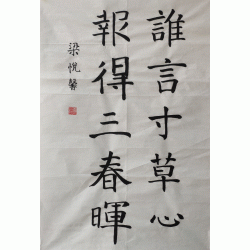 誰言寸草心
報得三春暉
梁悅馨